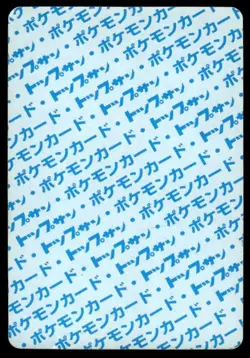 ポケモンカード・トップサン
トップサン・ポケモンカード
ポケモンカード・トップサン
・トップサン・ポケモンカード
ポケモンカード・トップサン・
トップサン・ポケモンカード
ポケモンカード・トップサン
・トップサン・ポケモンカード
ポケモンカード・トップサン・
トップサン・ポケモンカード
ポケモンカード・トップサン
・トップサン・ポケモンカード
ポケモンカード